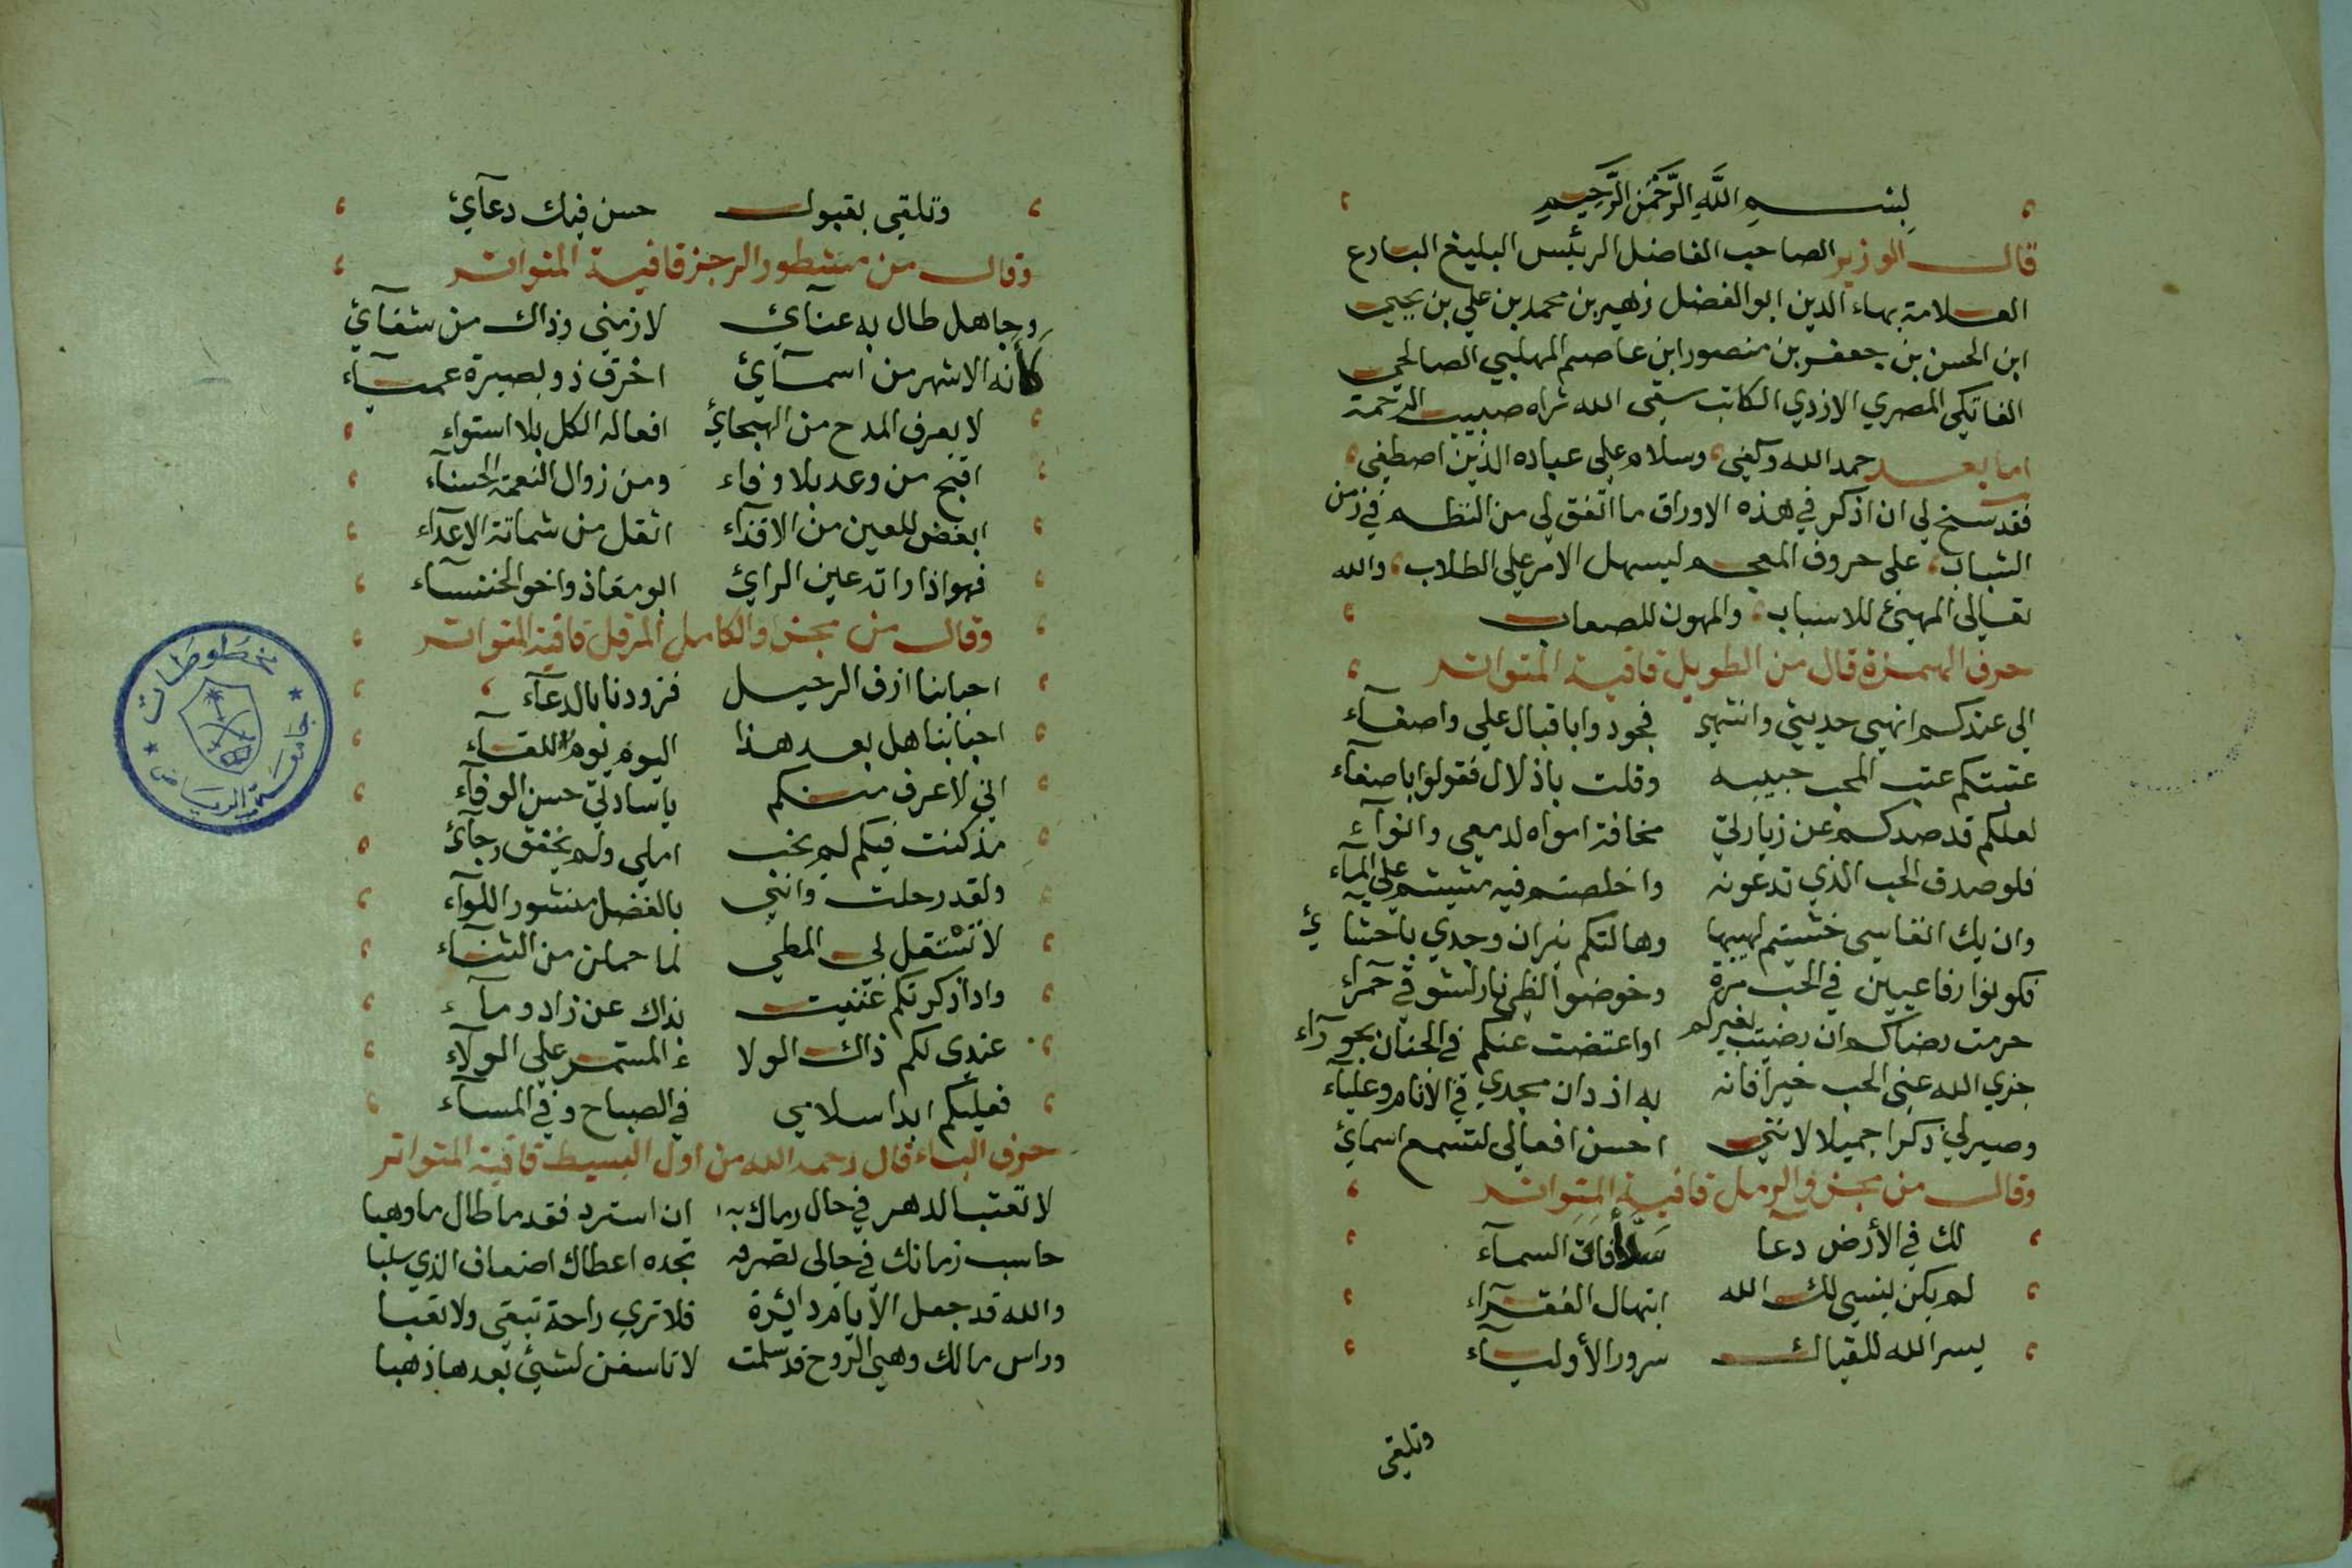 بِسْمِ اللَّهِ الرَّحْمَنِ الرَّحِيمِ
قال الوزير الصاحب الفاضل الرئيس البليغ البارع
العلامة بهاء الدين ابو الفضل زهير بن محمد بن علي بن يحيى
ابن الحسن بن جعفر بن منصور ابن عاصم المهلبي الصالحي
الفاتكي المصري الازدي الكاتب سقى الله ثراه صبيب الرحمة
اما بعد حمد الله وكفى، وسلام على عباده الذين اصطفى،
فقد سنح لي ان اذكر في هذه الاوراق ما اتفق لي من النظم في زمن
الشباب، على حروف المعجم ليسهل الامر على الطلاب، والله
تعالى المهيئ للاسباب، والمهون للصعاب
حرف الهمزة قال من الطويل قافية المتواتر
الى عندكم انهي حديثي وانتهي فجودوا باقبال علي واصغآء
عتبتكم عتب المحب حبيبه وقلت باذلال فقولوا باصغآء
لعلكم قد صدكم عن زيارتي مخافة امواه لدمعي وانوآء
فلو صدق الحب الذي تدعونه واخلصتم فيه مشيتم على المآء
وان يك انفاسي خشيتم لهيبها وهالتكم نيران وجدي باحشائي
فكونوا رفاعيين في الحب مرة وخوضوا لظى نار لشوقي حمراء
حرمت رضاكم ان رضيت بغيركم او اعتضت عنكم في الجنان بحوراء
جزى الله عني الحب خيرا فانه به ازدان مجدي في الأنام وعليآء
وصير لي ذكرا جميلا لانني احسن افعالي لتسمع اسمائ
وقال من مجزو الرمل قافية المتواتر
لك في الأرض دعآ سَدَّ أَفَاقَ السمآء
لم يكن ينسى لك الله ابتهال الفقرآء
يسر الله للقياك سرور الأوليآء
وتلقى
وتلقى بقبول حسن فيك دعآئ
وقال من مشطور الرجز قافية المتواتر
وجاهل طال به عنآئي لازمني وذاك من شقآئي
كأنه الاشهر من اسمآئ اخرق ذو بصيرة عميآء
لا يعرف المدح من الهجائ افعاله الكل بلا استواء
اقبح من وعد بلا وفاء ومن زوال النعمة الحسنآء
ابغض للعين من الاقذآء اثقل من شماتة الاعدآء
فهو اذا راته عين الرائ ابو معاذ واخو الخنسآء
وقال من مجزو الكامل المرفل قافية المتواتر
احبابنا ازف الرحيل فزودنا بالدعآء
احبابنا هل بعد هذا اليوم يوم للقآء
اني لاعرف منكم يا سادتي حسن الوفآء
مذ كنت فيكم لم يخب املي ولم يخفق رجآئ
ولقد رحلت وانني بالفضل منشور اللوآء
لا تَسْتقل لي المطي لما حملن من الثنآء
واذا ذكرتكم غنيت بذاك عن زاد ومآء
عندي لكم ذاك الولا ء المستمر على الولآء
فعليكم ابدا سلامي في الصباح وفي المسآء
حرف الباء قال رحمه الله من اول البسيط قافية المتواتر
لا تعتب الدهر في حال رماك به ان استرد فقدما طال ما وهبا
حاسب زمانك في حالي تصرفه تجده اعطاك اضعاف الذي سلبا
والله قد جعل الأيام دائرة فلا ترى راحة تبقى ولا تعبا
وراس مالك وهي الروح قد سلمت لا تاسفن لشيئ بعدها ذهبا
مخطوطات
جامعة الرياض